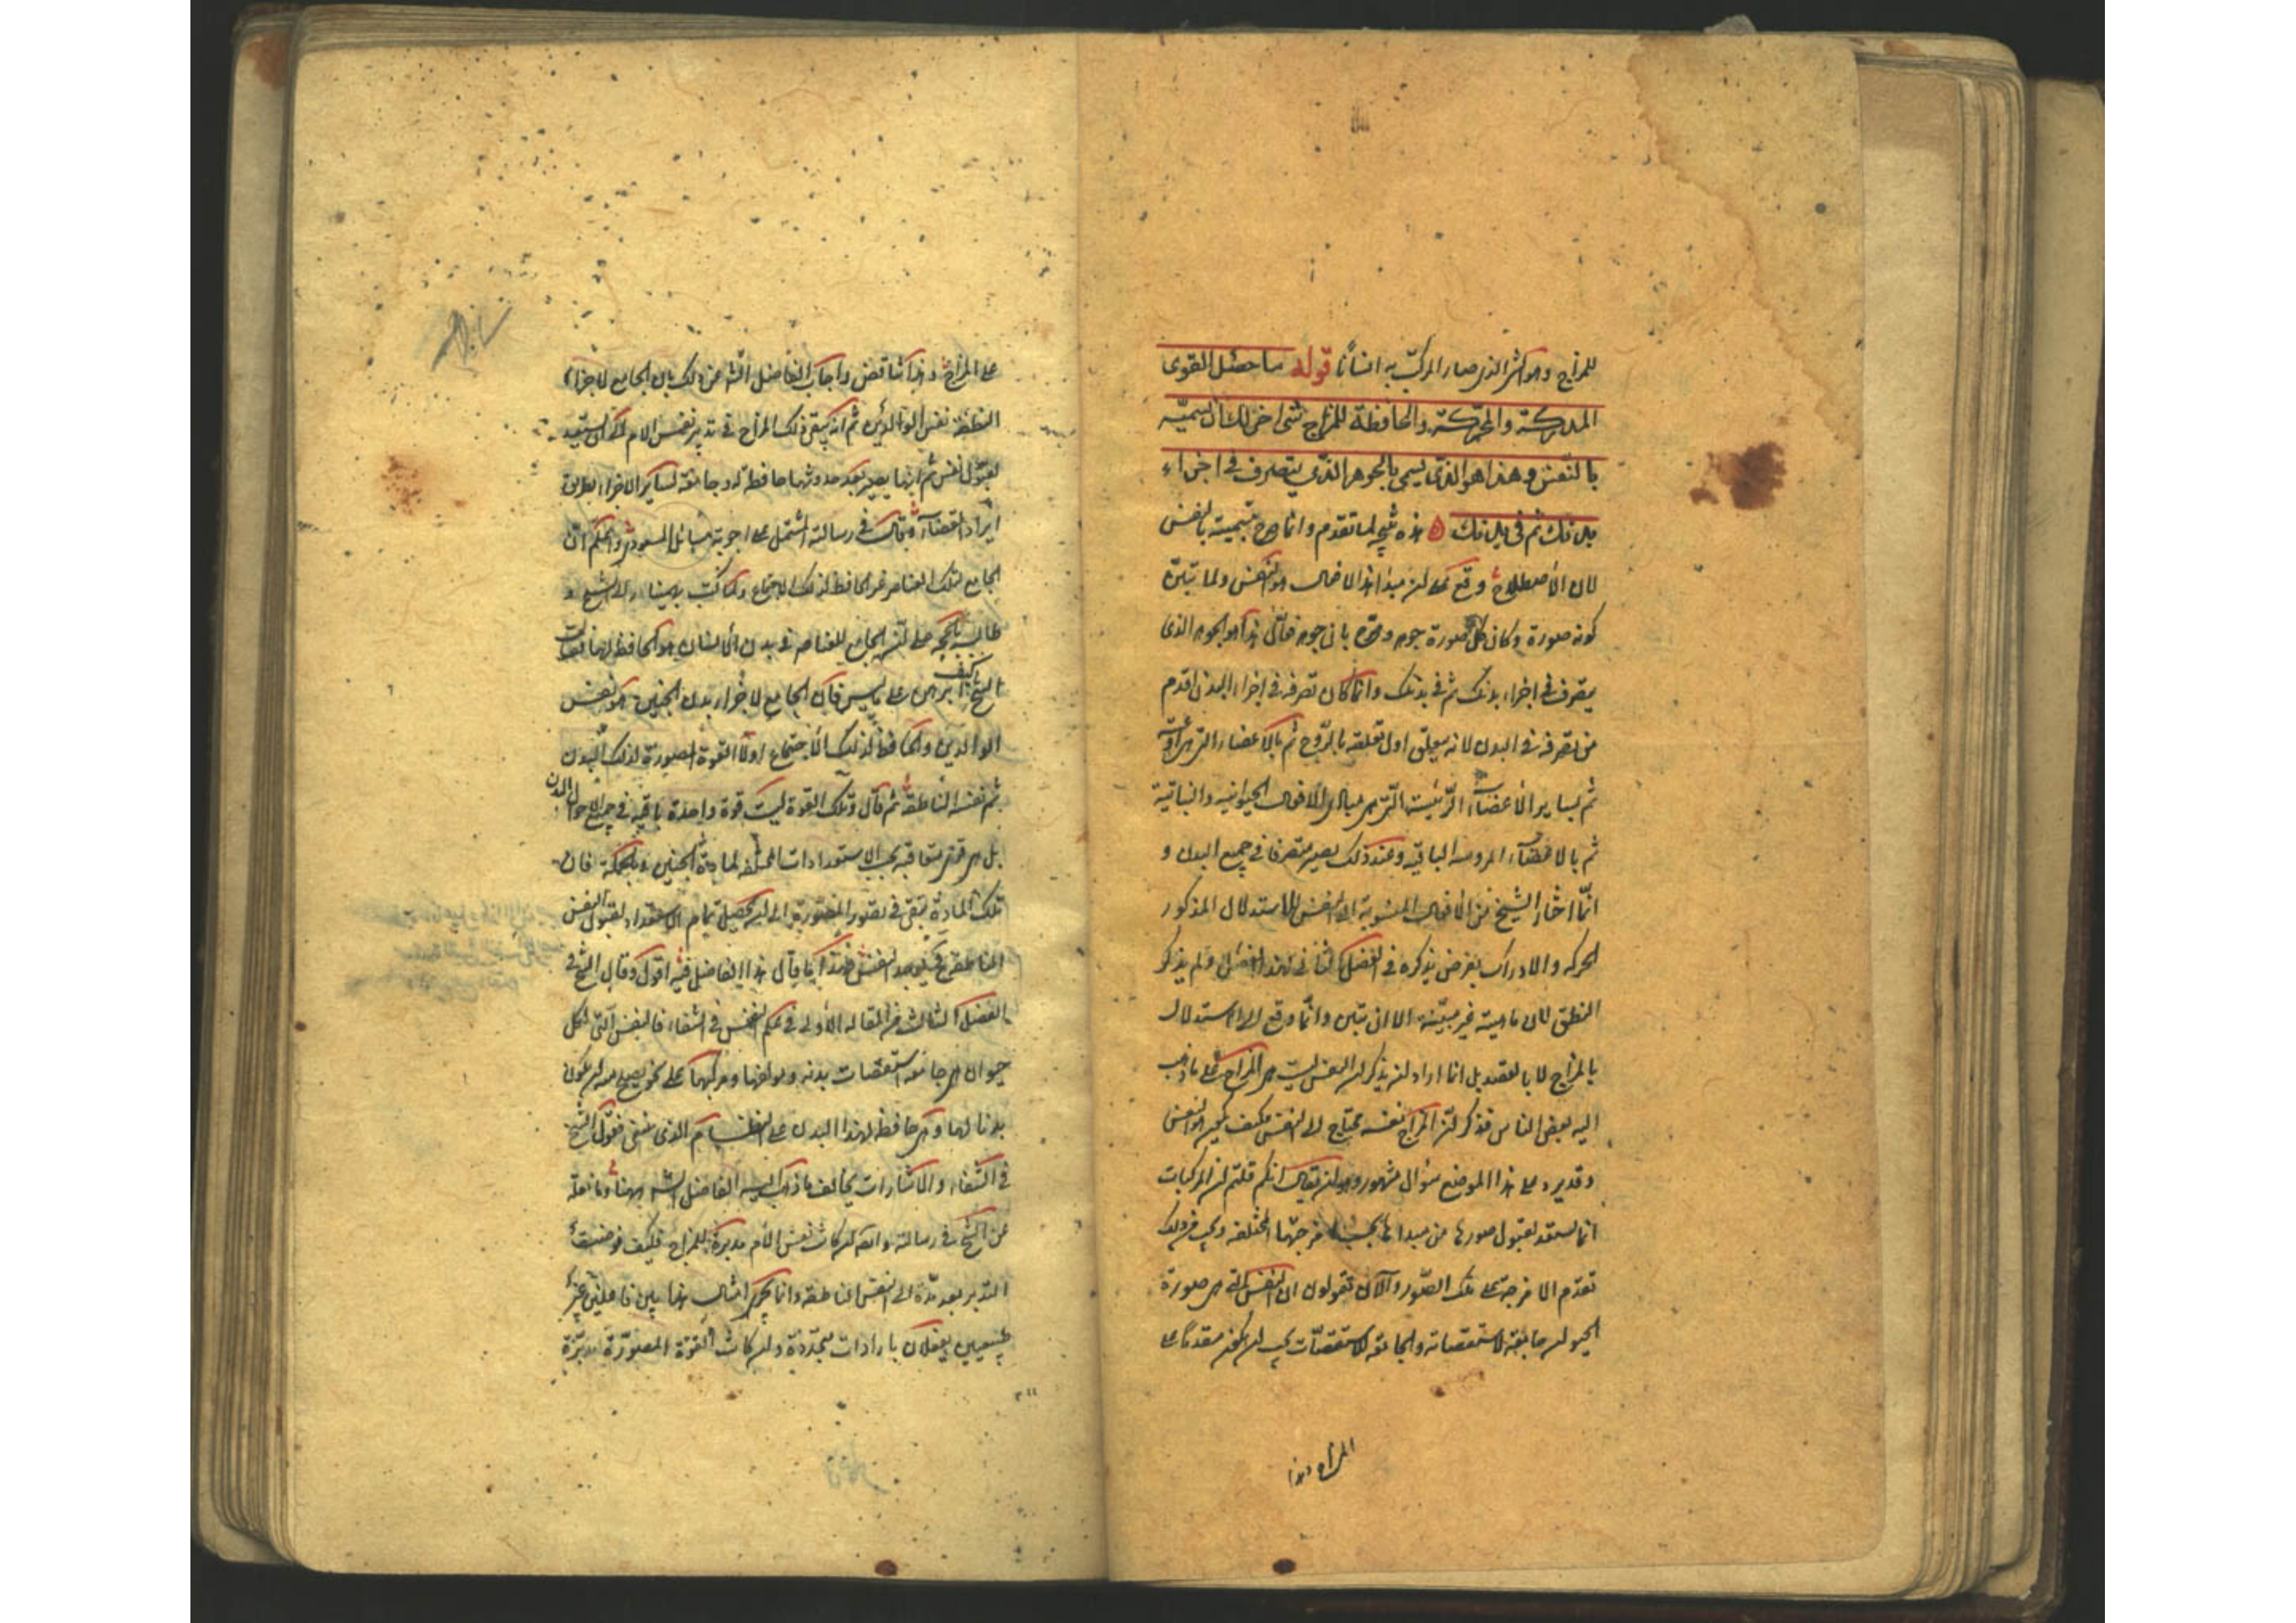 للمزاج وهو الشئ الذى صار المركب به انسانا قوله فاصل القوى
المدركة والمحركة والحافظة للمزاج شئ اخر لك ان تسميه
بالنفس وهذا هو الجوهر الذى يتصرف فى اجزاء
بدنك ثم فى بدنك هذه نتيجة لما تقدم وانما صرح بتسميته بالنفس
لان الاصطلاح وقع على ان مبدأ هذه الافعال هو النفس ولما تبين
كونه صورة وكان كل صورة جوهر بان جوهر هذا هو الجوهر الذى
يتصرف فى اجزاء بدنك ثم فى بدنك وانما كان تصرفه فى اجزاء البدن اقدم
من تصرفه فى البدن لانه يتعلق اول تعلقه بالروح ثم بالاعضاء التى هى
ثم بساير الاعضاء الرئيسة التى هى مبادى الافعال الحيوانية والنباتية
ثم بالاعضاء المروسة الباقية وعند ذلك يصير متصرفا فى جميع البدن و
انما اختار الشيخ من الافعال المنسوبة الى النفس للاستدلال المذكور
الحركة والادراك لغرض يذكره فى الفصل الثانى لهذا الفصل ولم يذكر
النطق لان ماهيته غير مبينة الا ان تبين وانما وقع الى الاستدلال
بالمزاج لا بالقصد بل انما اراد ان يذكر ان النفس ليست هى المزاج على ما ذهب
اليه بعض الناس فذكر ان المزاج نفسه محتاج الى النفس فكيف يكون هو النفس
وقد يرد على هذا الموضع سؤال مشهور وهو ان يقال انكم قلتم ان المركبات
انما تستعد لقبول صورها من مبدأها بحسب امزجتها المختلفة ويجب من ذلك
تقدم الامزجة على تلك الصور والآن تقولون ان النفس التى هى صورة
الحيوان جامعة لاسطقصاته والجامعة للاسطقصات يجب ان يكون مقدما على
المزاج وهذا
على المزاج وهذا تناقض واجاب الفاضل الشه عن ذلك بان الجامع لاجزاء
النطفة نفس الوالدين ثم انه يبقى ذلك المزاج فى تدبير نفس الام الى ان يستعد
لقبول نفس ثم انها يصير بعد حدوثها حافظة له وجامعة لساير الاجزاء بطريق
ايراد الغذاء وقال فى رسالته المشتمل على اجوبة مسائل المسعودى واعلم ان
الجامع لتلك العناصر غير الحافظ لذلك الاجتماع ولما كتب بهمنيار الى الشيخ و
طالبه بالحجة على ان الجامع للعناصر فى بدن الانسان هو الحافظ لها فقال
الشيخ كيف ابرهن على ما ليس فان الجامع لاجزاء بدن الجنين هو نفس
الوالدين والحافظ لذلك الاجتماع اولا القوة المصورة لذلك البدن
ثم نفسه الناطقة ثم قال وتلك القوة ليست قوة واحدة باقية فى جميع الاحوال
بل هى قوى متعاقبة بحسب الاستعدادات المختلفة لمادة الجنين وبالجملة فان
تلك المادة تبقى فى تصور المصورة الى ان يحصل تمام الاستعداد لقبول النفس
الناطقة فحينئذ يوجد النفس فهذا ما قال هذا الفاضل فيه اقول وقال الشيخ فى
الفصل الثالث من المقالة الاولى فى علم النفس فى الشفاء فالنفس التى لكل
حيوان هى جامعة اسطقصات بدنه ومولفها ومركبها على نحو يصلح معه ان يكون
بدنا لها وهى حافظة لهذا البدن على النظام الذى ينبغى فقول الشيخ
فى الشفاء والاشارات يخالف ما ذهب اليه الفاضل الشه ههنا وما نقله
عن الشيخ فى رسالته وايضا ان كانت نفس الام مدبرة للمزاج فكيف فوضت
التدبير بعد مدة الى النفس الناطقة وانما يجرى امثال هذا بين فاعلين غير
طبيعيين يفعلان بارادات متجددة وان كانت القوة المصورة مدبرة